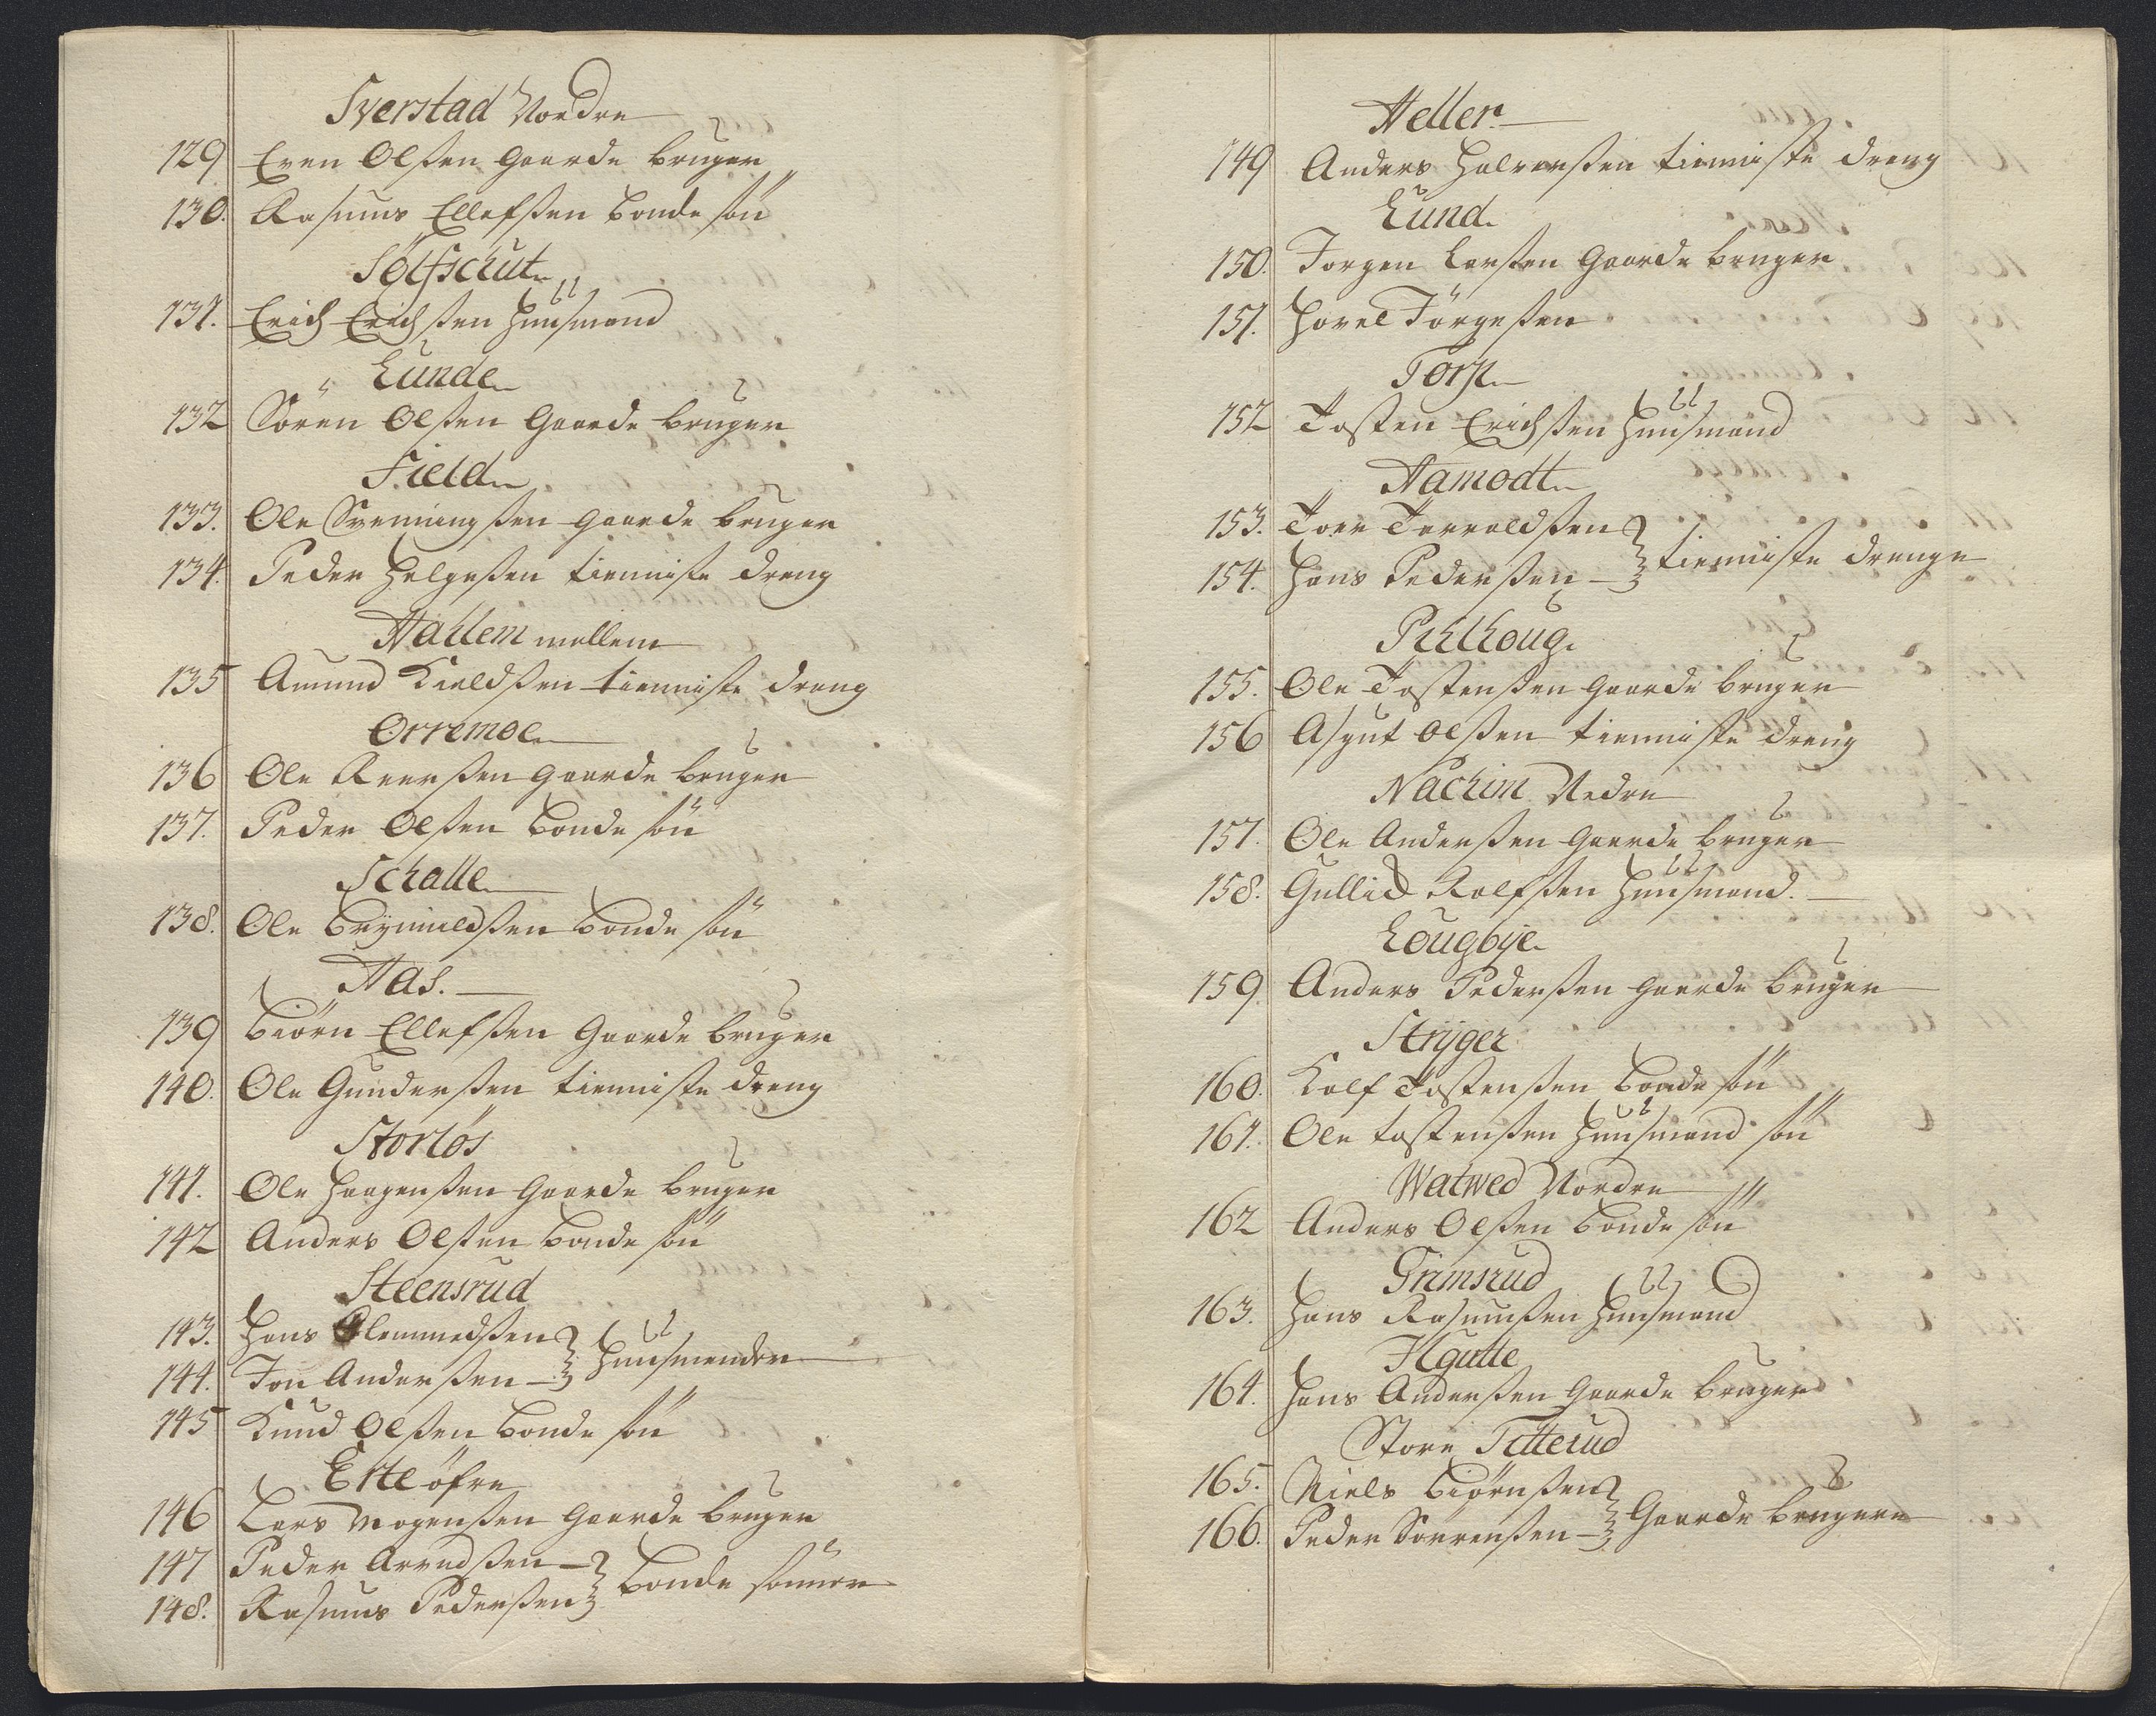 Sverstad Nordre
129 Even Olssen Gaarde bruger
130. Rasmus Ellefssen bonde søn
Sølfschut
131. Erich Erichssen Huusmand
Lunde
132 Søren Olssen Gaarde bruger
Field
133. Ole Svenningssen gaarde bruger
134. Peder Helgessen tienniste dreng
Hahlem mellem
135 Amund Kieldssen tienniste dreng
Orremoe
136 Ole Reerssen gaarde bruger
137. Peder Olssen bonde søn
Schalle
138. Ole Brynildssen bonde søn
Aas.
139 Biørn Ellefssen Gaarde bruger
140. Ole Gunderssen tienniste dreng
Storløs
141. Ole Haagenssen gaarde bruger
142 Anders Olssen bonde søn
Steensrud
143. Hans Clemmedssen
144. Jon Anderssen Huusmænder
145 Knud Olssen bonde søn
Erte øfre
146 Lars Mogenssen gaarde bruger
147 Peder Arvedssen
148. Rasmus Pederssen bonde sønner
Heller
149 Anders Halvorssen tienniste dreng
Lund.
150. Jørgen Larssen gaarde bruger
151. Hovel Jørgessen
Torp
152 Tosten Erichssen Huusmand
Aamodt
153. Tore Torvaldssen
154. Hans Pederssen tienniste drenge
Pihlhoug.
155. Ole Tostenssen gaarde bruger
156 Asgut Olssen tienniste dreng
Nachim Nedre
157. Ole Anderssen gaarde bruger
158. Gullich Rolfssen Huusmand.
Lougbye
159. Anders Pederssen gaarde bruger
Stryger
160. Rolf Tostenssen bonde søn
161. Ole Tostenssen Huusmand søn
Watwed Nordre
162 Anders Olssen bonde søn
Grimsrud
163. Hans Rasmussen Huusmand
164. Hans Anderssen Gaarde bruger
Store Titterud
165. Niels Biørnssen
166. Peder Sørrenssen Gaarde brugere